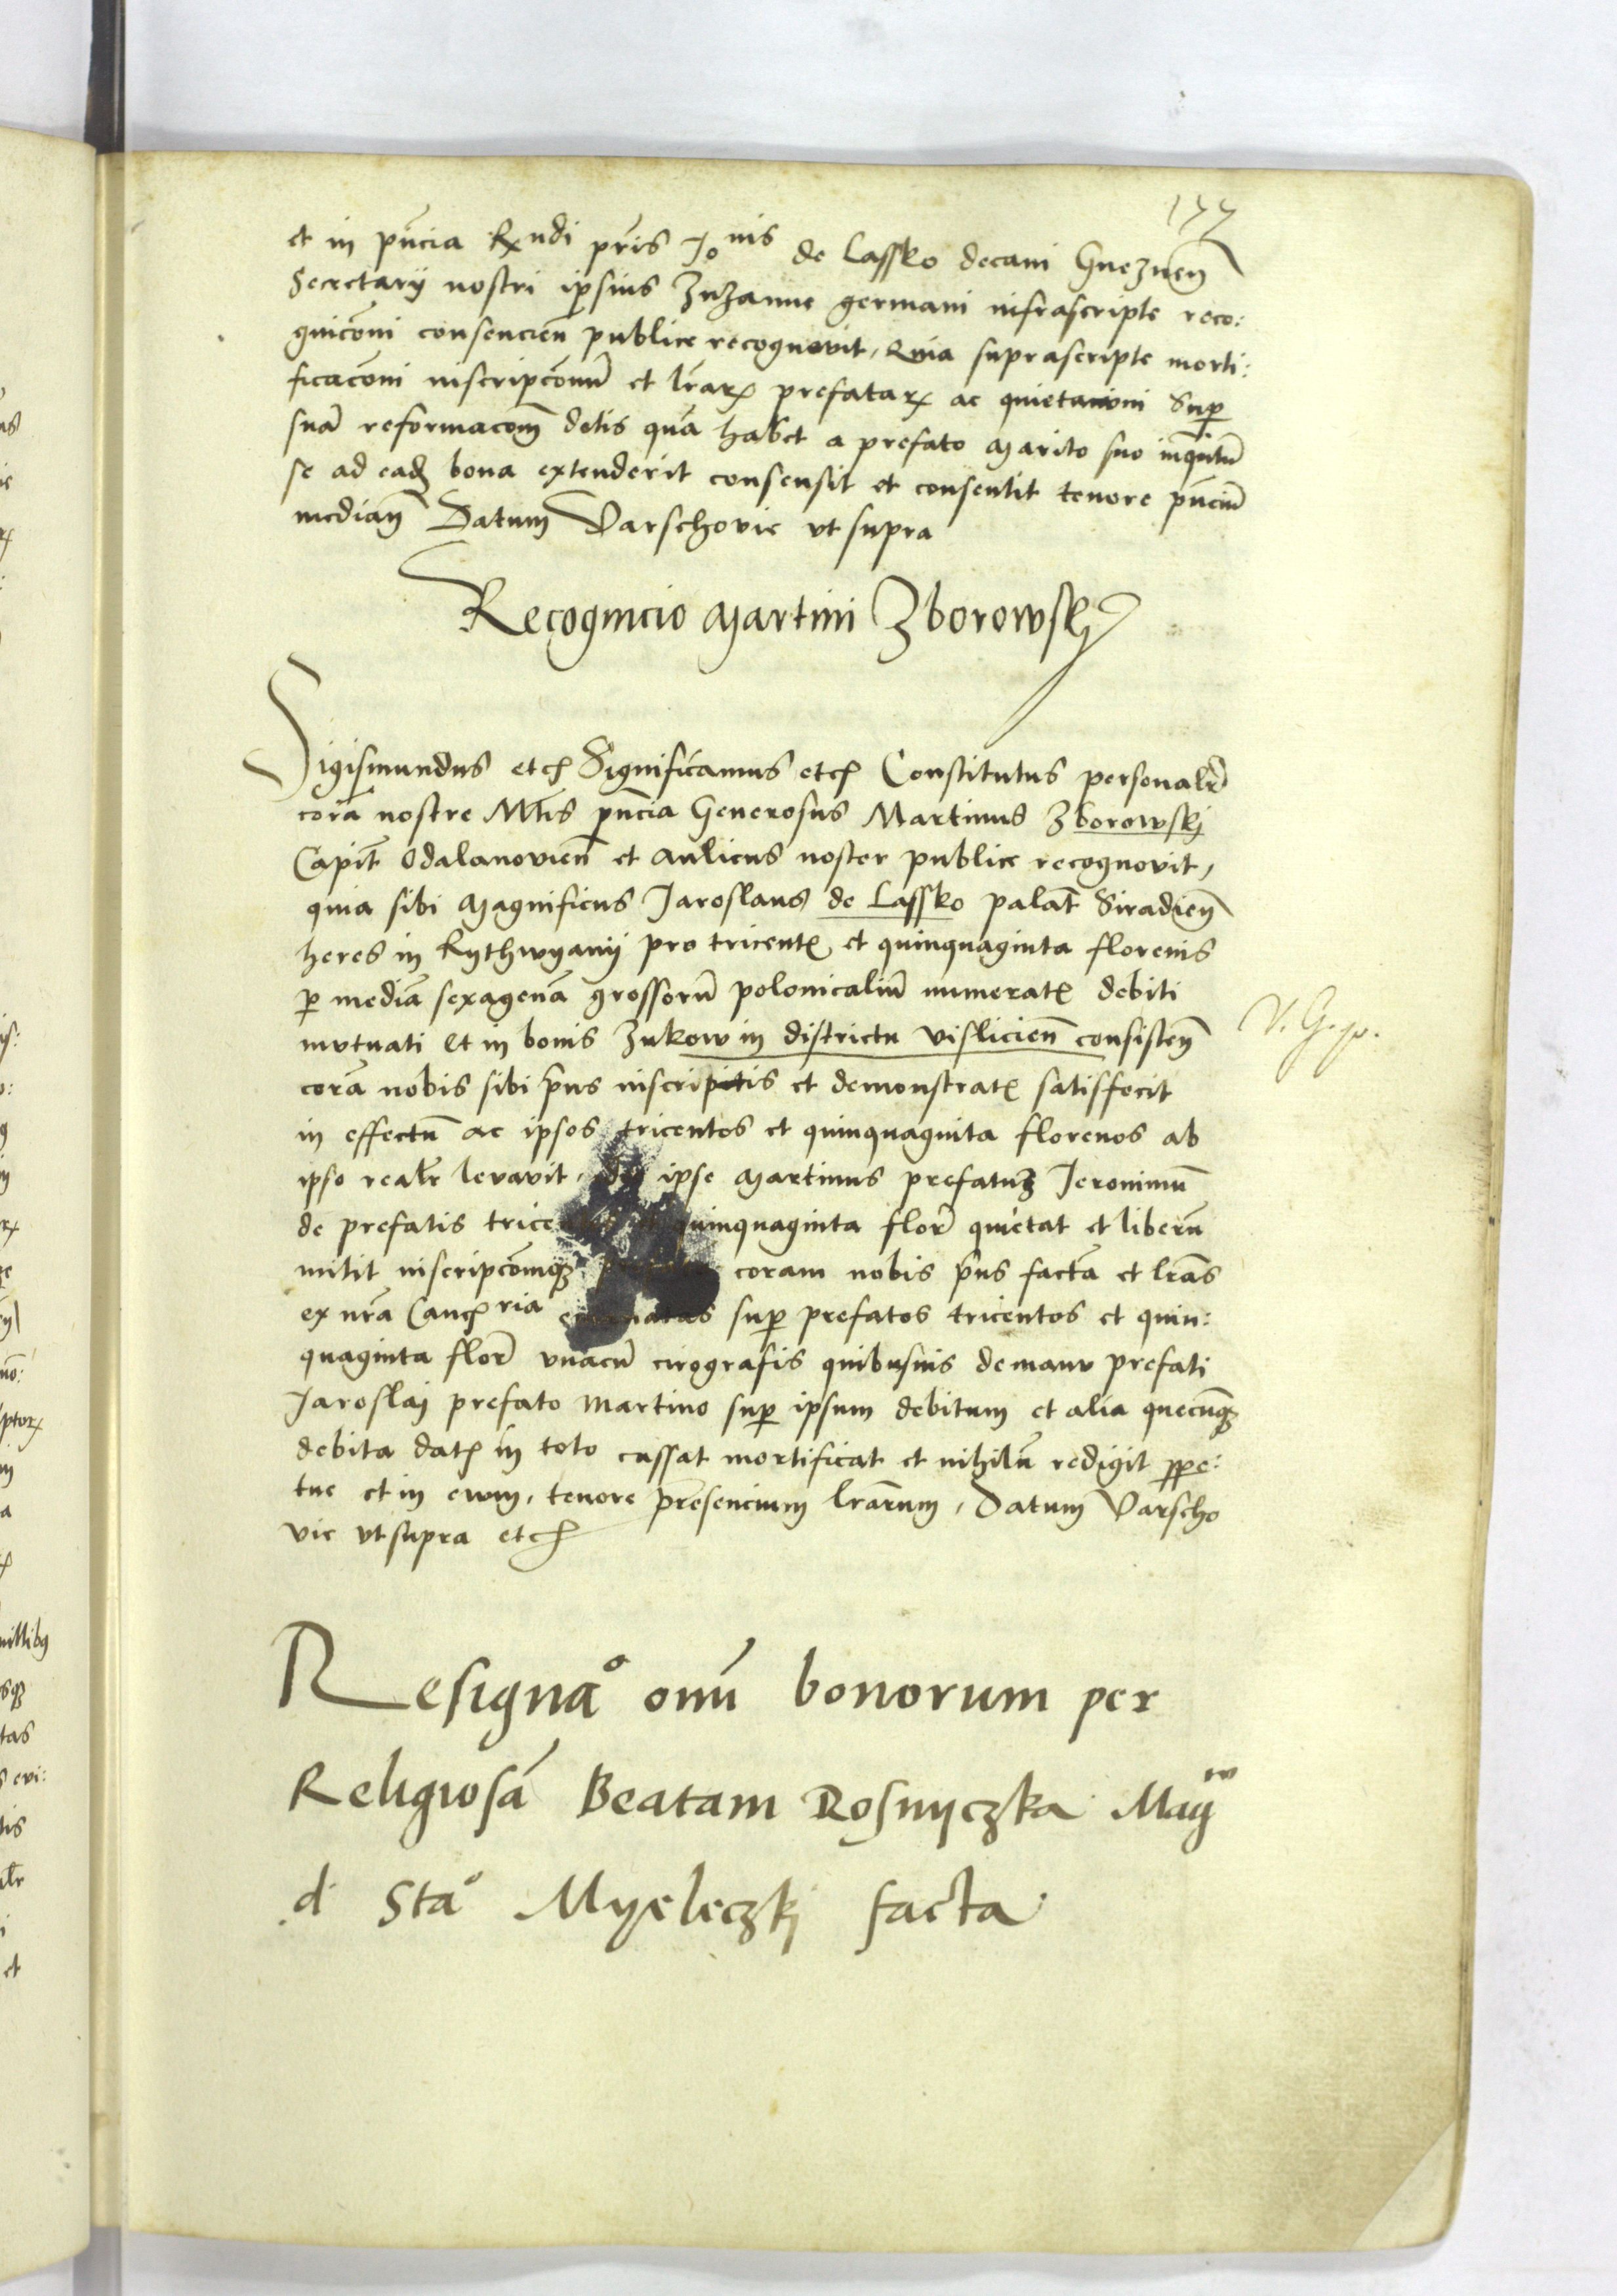 177
et in pn̄cia Rx ndi pr̄is Jo nis de Lassko decani Gnezneñ
Secretarij nostri ipsius Zuzanne germani infrascripte reco:
gnicōni consencieñ publice recognovit, Quia suprascripte morti:
ficacōni inscripcōnum̄ et lr̄arꝝ prefatarꝝ ac quietacioni Suꝑ
suā reformacōem̄ dotis quā habet a prefato Marito suo inqn̄tum̄
se ad eadꝫ bona extenderit consensit et consentit tenore pn̄ciū
median̄ Datum Varschovie vt supra
Recognicio Martini Zborowskj
Sigismundus etcꝫ Significamus etcꝫ Constitutus personalr̄
corā nostre Mt̄is pn̄cia Generosus Martinus Zborowskj
Capit̄ Odalanovieñ et aulicus noster publice recognovit,
quia sibi Magnificus Jaroslaus de Lassko palat̄ Siradieñ
heres in Rythwyanij pro tricentꝭ et quinquaginta florenis
ꝑ mediā sexagenā grossorū polonicaliū numeratꝭ debiti
mutuati et in bonis Zukow in districtu vislicieñ consisteñ
corā nobis sibi pr̄us inscriptis et demonstratꝭ satisfecit
in effectū ac ipsos tricentos et quinquaginta florenos ab
ipso realr̄ levavit, ipse Martinus prefatuꝫ Jeronimū
de prefatis quinquaginta flor̄ quietat et liberū
mitit inscripcōmqꝫ coram nobis pr̄us factā et lr̄as
ex nr̄a Cancꝫ ria suꝑ prefatos tricentos et quin:
quaginta flor̄ vnacū cirografis quibusuis de manu prefati
Jaroslaj prefato Martino suꝑ ipsum debitum et alia quecūqꝫ
debita datꝭ in toto cassat mortificat et nihilū redigit ꝑpe:
tue et in evum, tenore pr̄esencium lr̄arum, Datum Varscho
vie vt supra etcꝫ
V. G. p.
Resignaᵒ om̄ium bonorum per
Religiosā Beatam Rosnyczka Magᶜᵒ
d Staᵒ Myeleczkj facta